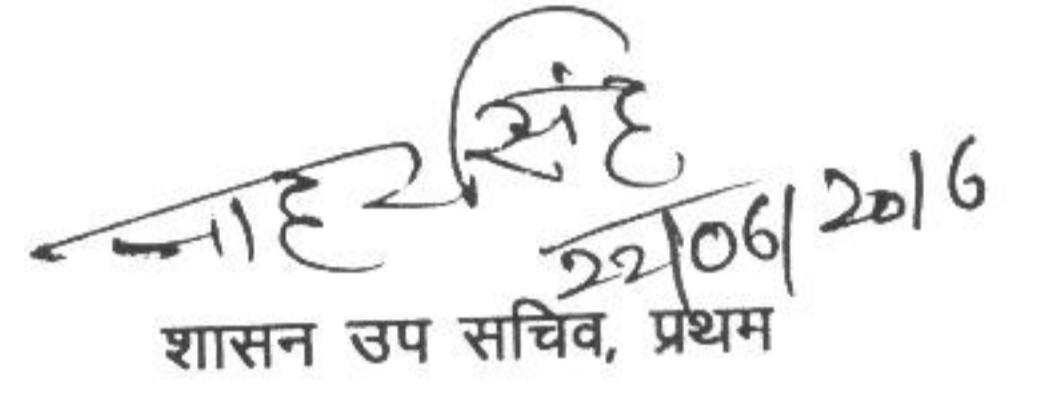 नाहर सिंह
22/06/2016
शासन उप सचिव, प्रथम